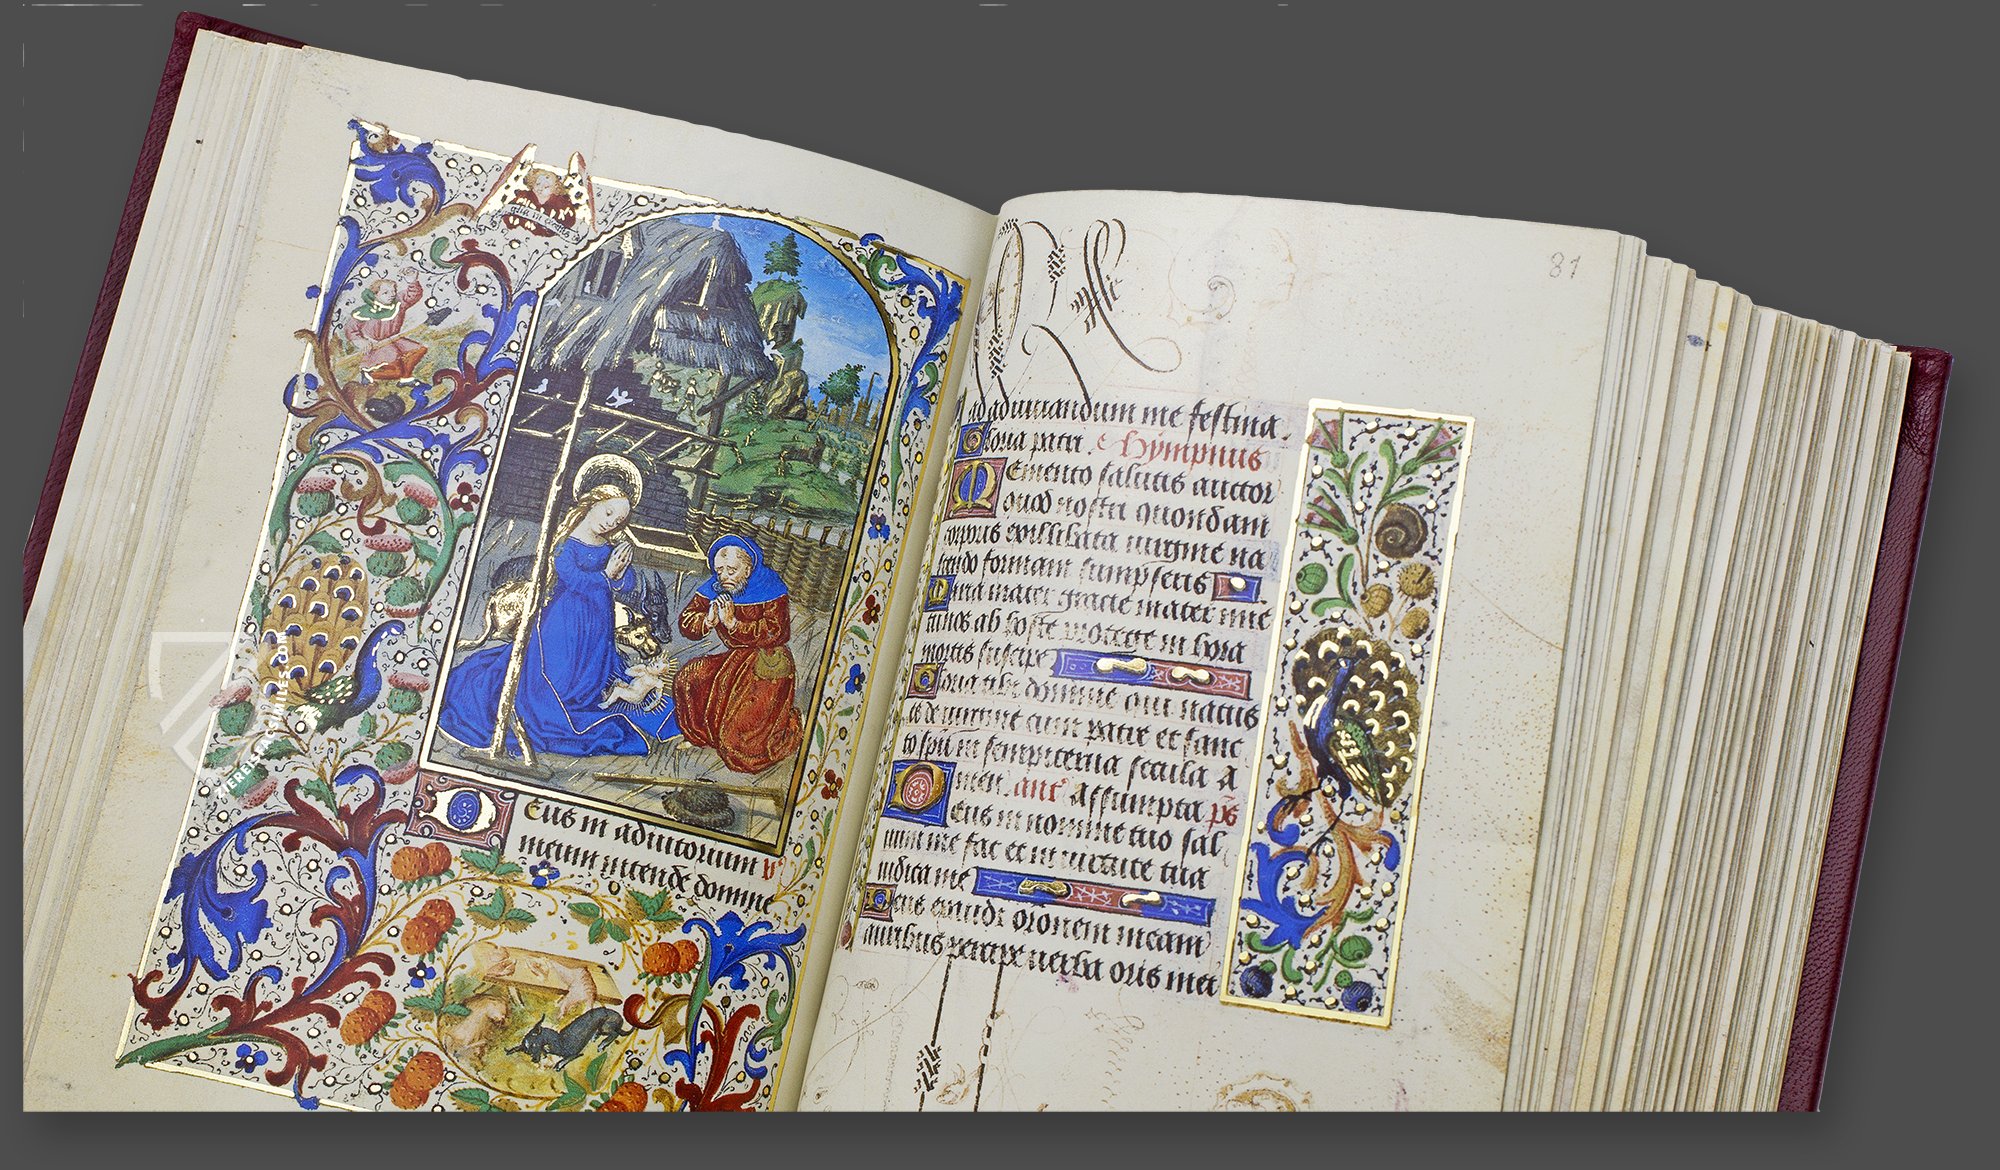 Eus in adiutorium
meum intende domine
81
ad adiuuandum me festina.
loria patri. Hympnus
Emento salutis auctor
quod nostri quondam
corporis ex illibata uirgine na
scendo formam sumpseris
aria mater gracie mater mie
tu nos ab hoste protege in hora
mortis suscipe
loria tibi domine qui natus
es de uirgine cum patre et sanc
to spu in sempiterna secula A
men. ant' Assumpta ps
Eus in nomine tuo sal
uum me fac et in uirtute tua
iudica me
eus exaudi oronem meam
auribus percipe uerba oris mei